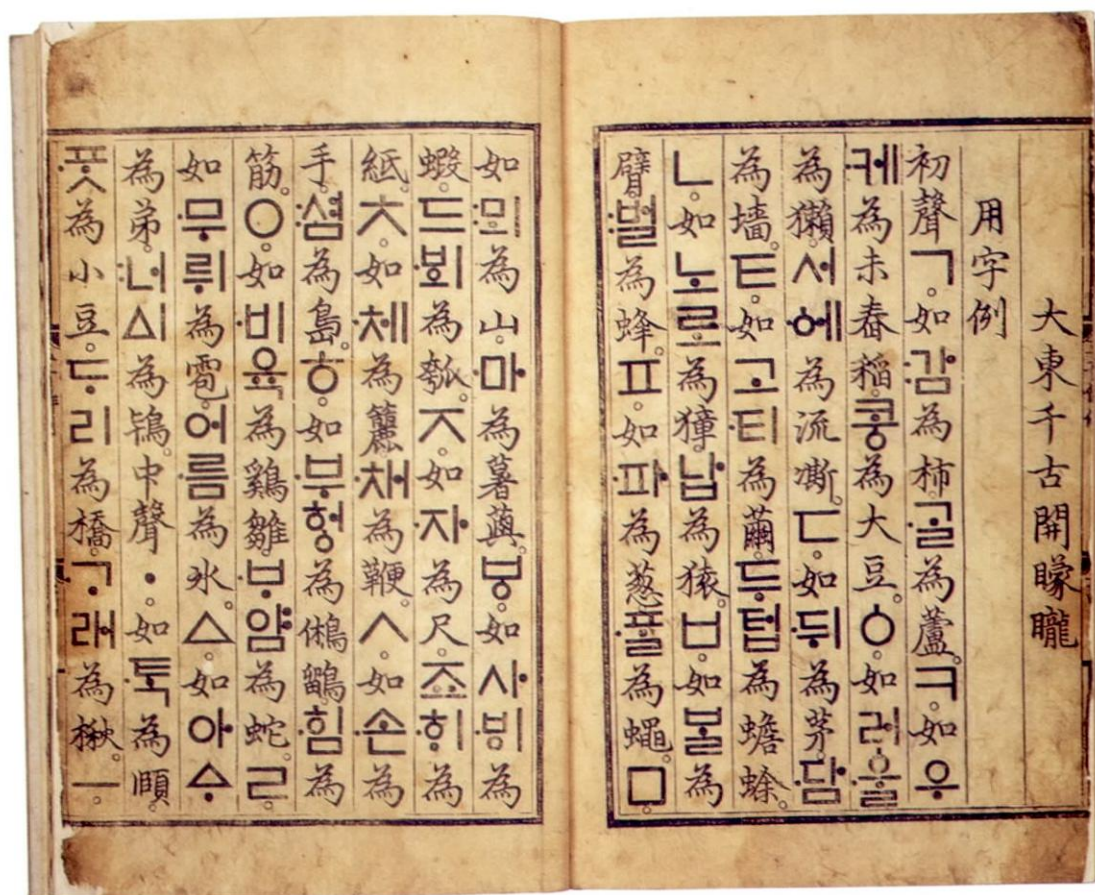 大東千古開矇矓
用字例
初聲ㄱ。如:감為柿。ᄀᆞᆯ為蘆。ㅋ。如우
케為未舂稻。코ᇰ為大豆。ㆁ。如러ᅌᅮᆯ
為獺。서ᅌᅦ為流凘。ㄷ。如뒤為茅。담
為墻。ㅌ。如고티為繭。두텁為蟾蜍。
ㄴ。如노로為獐。납為猿。ㅂ。如ᄇᆞᆯ為
臂。벌為蜂。ㅍ。如파為葱。ᄑᆞᆯ為蠅。ㅁ。
如뫼為山。마為薯藇。ㅸ。如사ᄫᅵ為
蝦。드ᄫᅴ為瓠。ㅈ。如자為尺。죠ᄒᆡ為
紙。ㅊ。如체為籭。채為鞭。ㅅ。如손為
手。셤為島。ㅎ。如부허ᇰ為鵂鶹。힘為
筋。ㅇ。如비육為鷄雛。ᄇᆞ얌為蛇。ㄹ。
如무뤼為雹。어름為氷。ㅿ。如아ᅀᆞ
為弟。너ᅀᅵ為鴇。中聲ㆍ。如ᄐᆞᆨ為頤。
ᄑᆞᆺ為小豆。ᄃᆞ리為橋。ᄀᆞ래為楸。ㅡ。